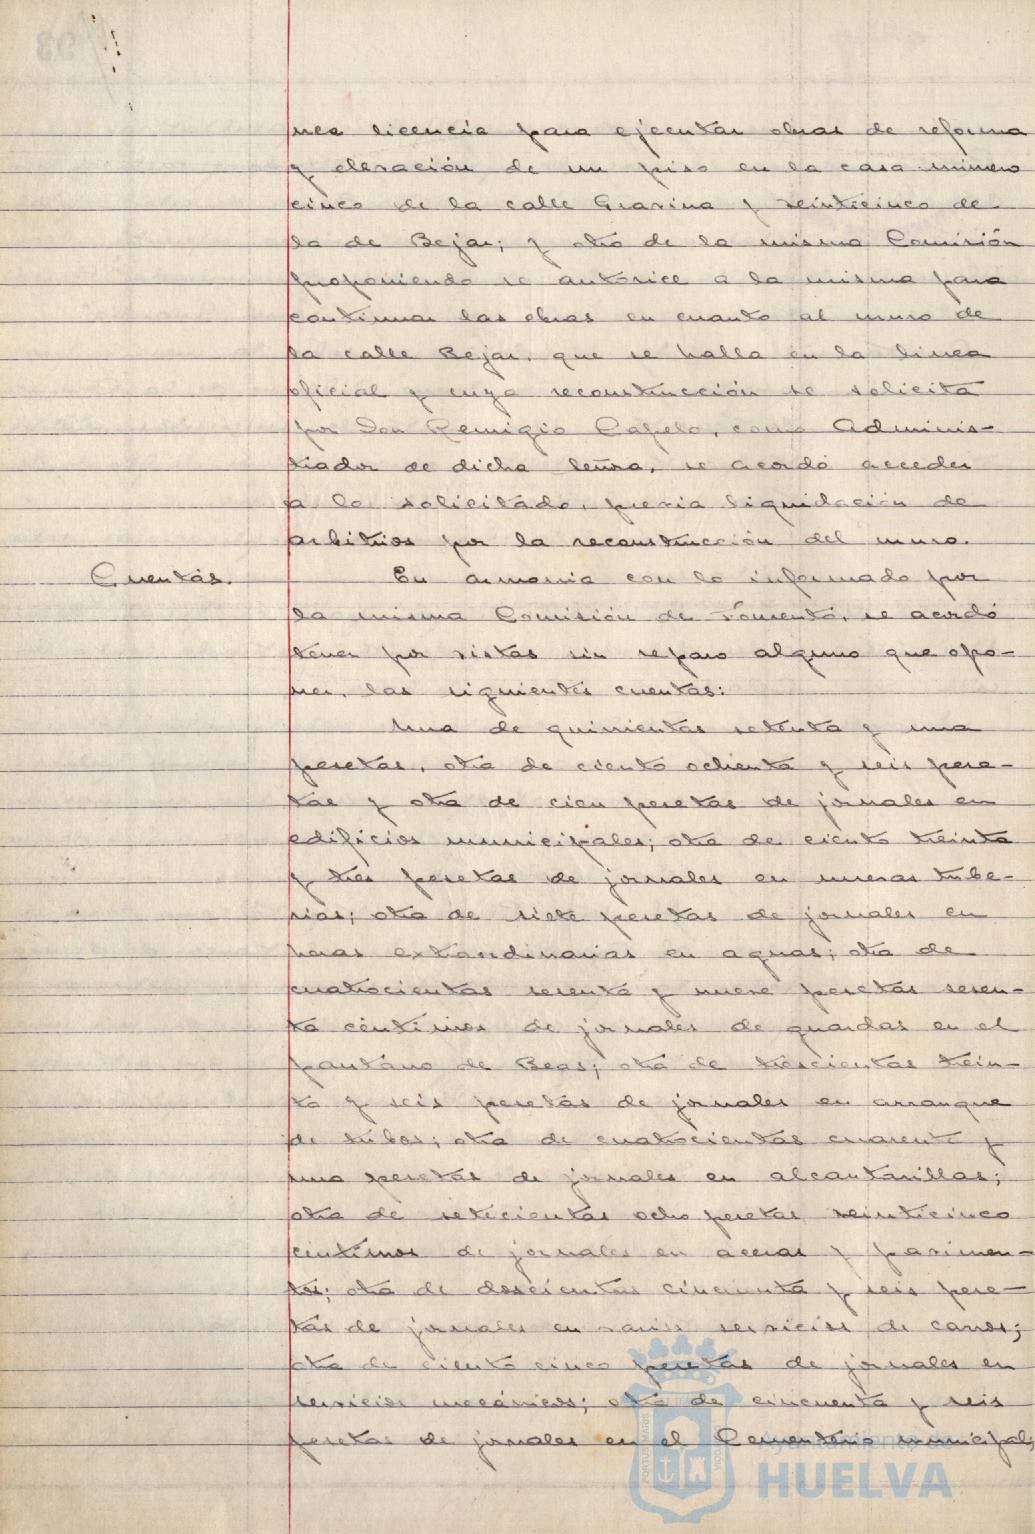 nes licencia para ejecutar obras de reforma
y elevación de un piso en la casa número
cinco de la calle Gravina y veinticinco de
la de Bejar; y otro de la misma Comisión
proponiendo se autorice a la misma para
continuar las obras en cuanto al muro de
la calle Bejar, que se halla en la linea
oficial y cuya reconstrucción se solicita
por Don Remigio Capelo, como Adminis-
trador de dicha Señora, se acordó acceder
a lo solicitado, previa liquidación de
arbitrios por la reconstrucción del muro.
Cuentas. En armonia con lo informado por
la misma Comisión de Fomento, se acordó
tener por vistas sin reparo alguno que opo-
ner, las siguientes cuentas:
Una de quinientas setenta y una
pesetas, otra de ciento ochenta y seis pese-
tas y otra de cien pesetas de jornales en
edificios municipales; otra de ciento treinta
y tres pesetas de jornales en nuevas tube-
rias; otra de siete pesetas de jornales en
horas extraordinarias en aguas; otra de
cuatrocientas sesenta y nueve pesetas sesen-
ta céntimos de jornales de guardas en el
pantano de Beas; otra de trescientas trein-
ta y seis pesetas de jornales en arranque
de tubos; otra de cuatrocientas cuarenta y
una pesetas de jornales en alcantarillas;
otra de setecientas ocho pesetas veinticinco
céntimos de jornales en aceras y pavimen-
tos; otra de doscientas cincuenta y seis pese-
tas de jornales en varios servicios de carros;
otra de ciento cinco pesetas de jornales en
servicios mecánicos; otra de cincuenta y seis
pesetas de jornales en el Cementerio municipal;
Ayuntamiento de
HUELVA